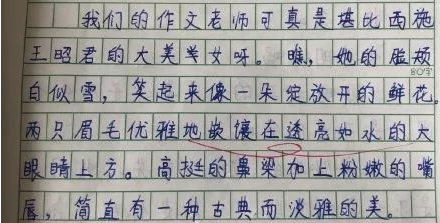 我们的作文老师可真是堪比西施
王昭君的大美美女呀。瞧，她的脸颊
80字
白似雪，笑起来像一朵绽放开的鲜花。
两只眉毛优雅地嵌镶在透亮如水的大
眼睛上方。高挺的鼻梁加上粉嫩的嘴
唇，简直有一种古典而淡雅的美。